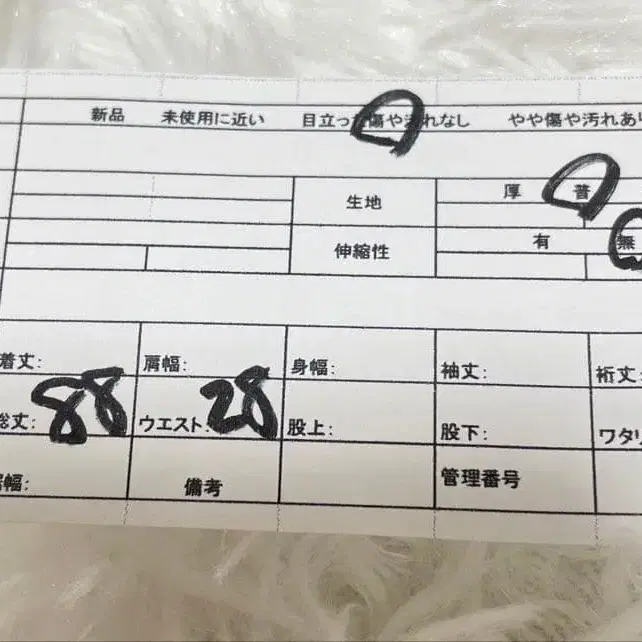 新品 未使用に近い 目立った傷や汚れなし やや傷や汚れあり
生地 厚 普
伸縮性 有 無
着丈: 肩幅: 身幅: 袖丈: 裄丈:
総丈: 88 ウエスト: 28 股上: 股下: ワタリ
裾幅: 備考 管理番号